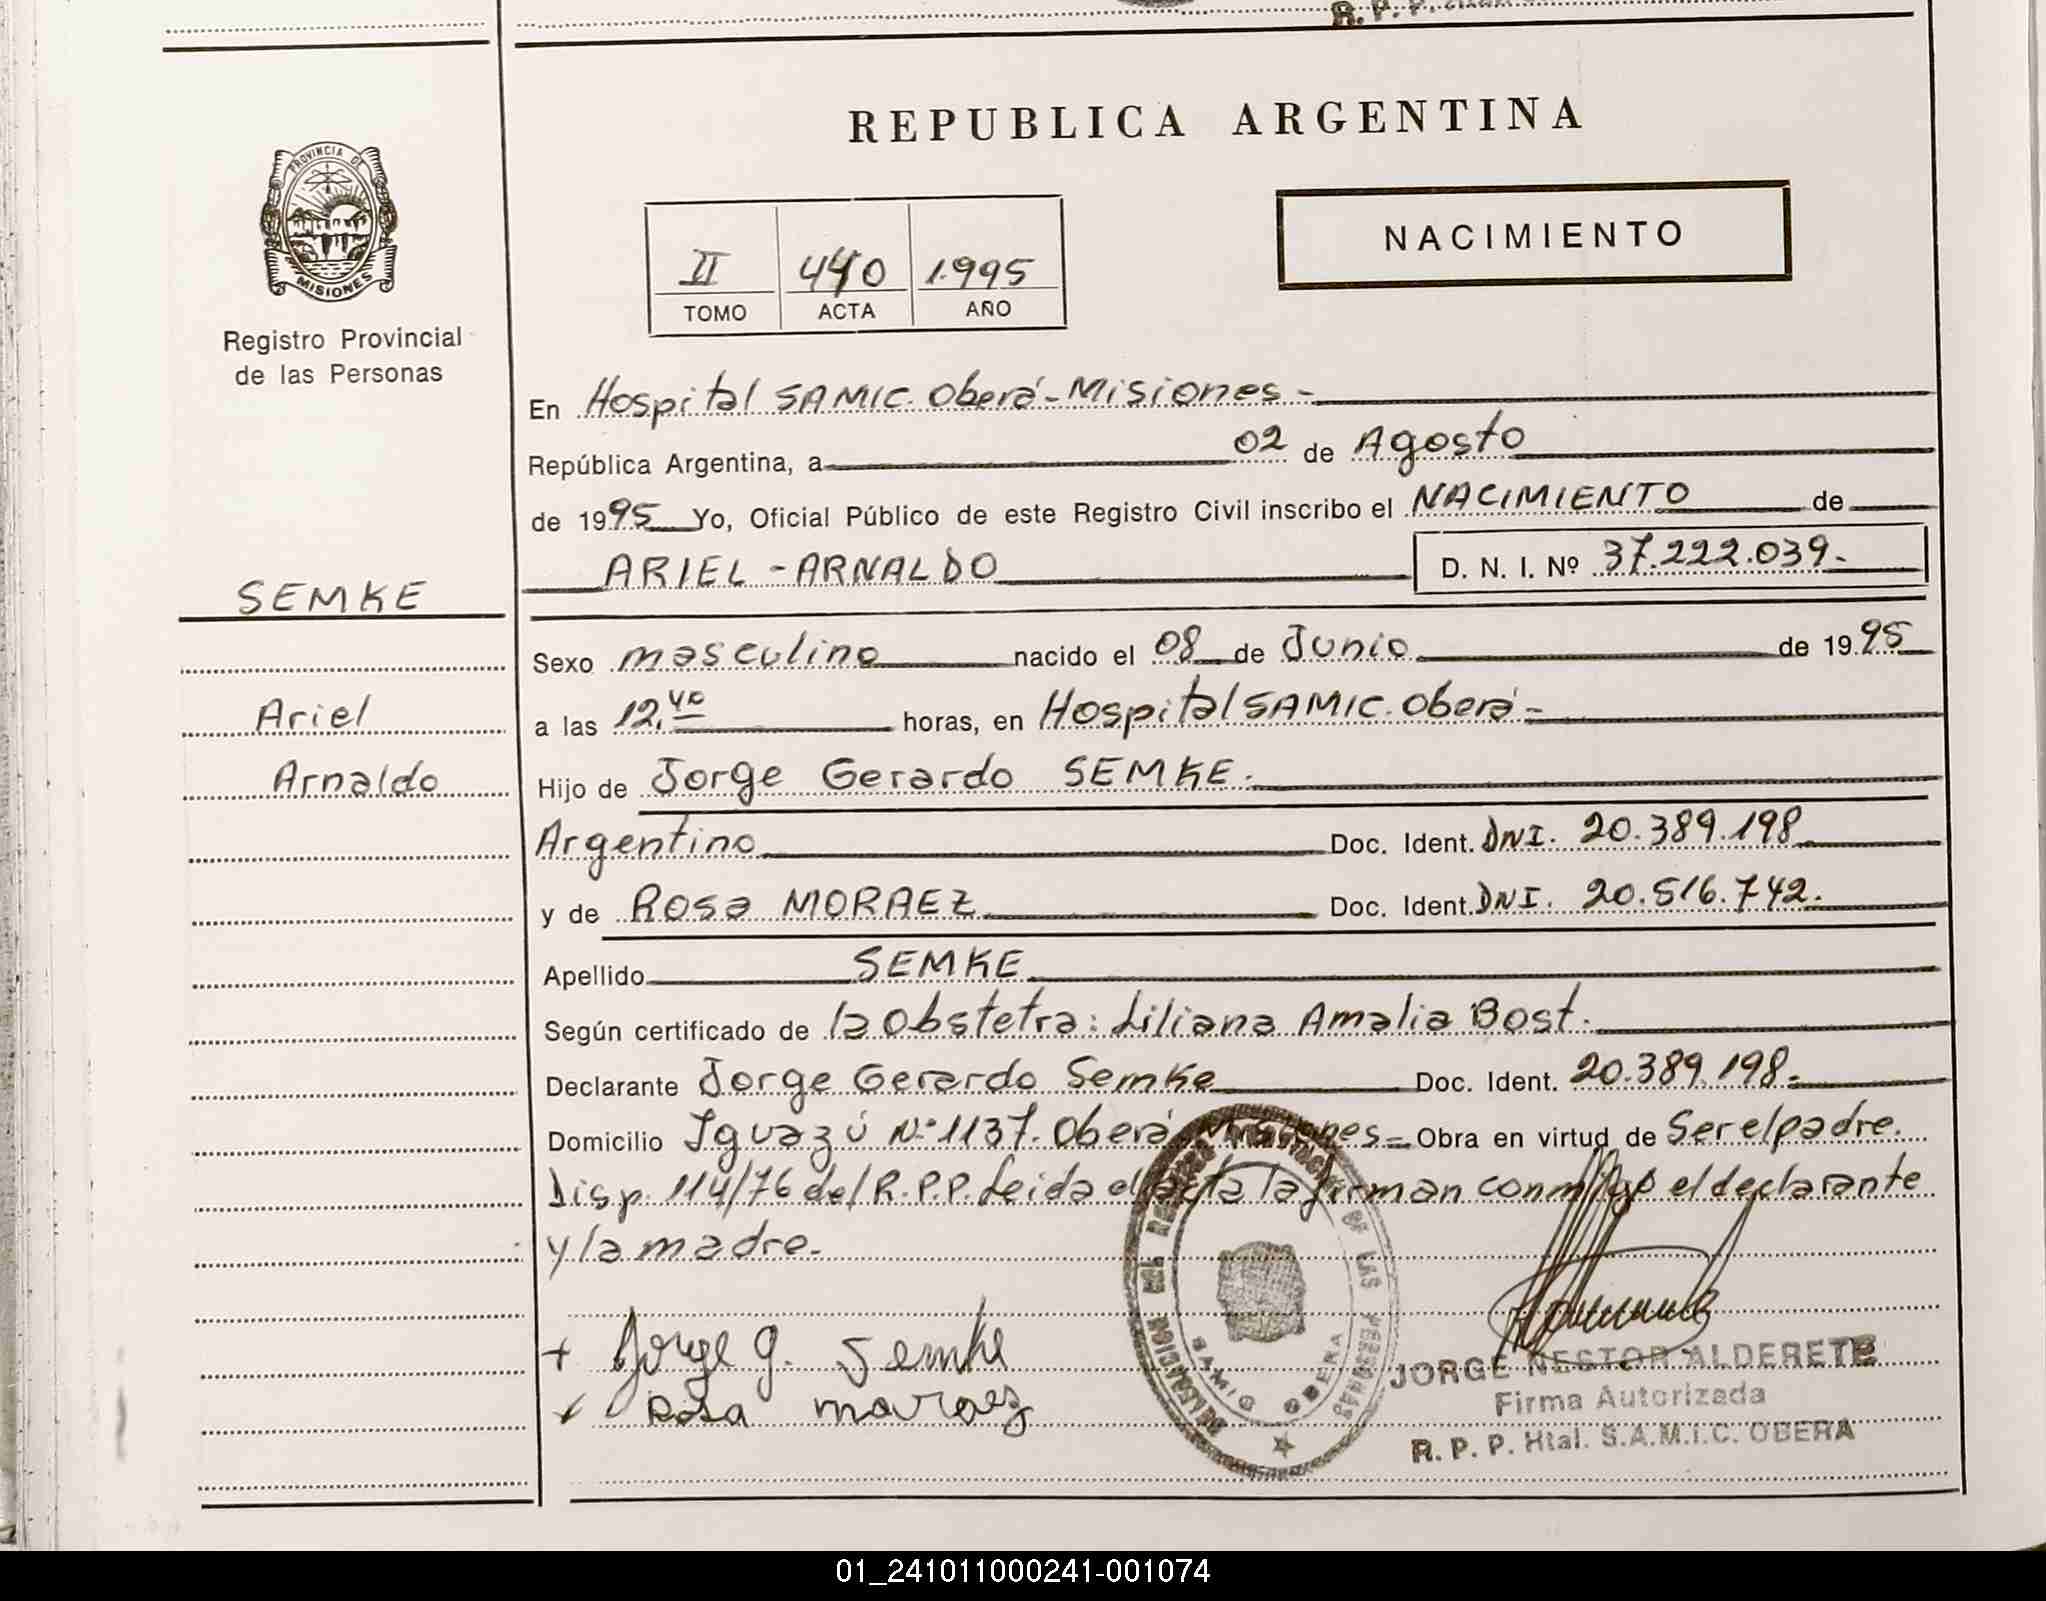 R. P. P.
REPUBLICA ARGENTINA
PROVINCIA DE
MISIONES
Registro Provincial
de las Personas
II 440 1.995
TOMO ACTA AÑO
NACIMIENTO
En Hospital SAMIC. Oberá-Misiones-
República Argentina, a 02 de Agosto
de 1995 Yo, Oficial Público de este Registro Civil inscribo el NACIMIENTO de
ARIEL-ARNALDO D. N. I. Nº 37.222.039.-
SEMKE
Sexo masculino nacido el 08 de Junio de 1995
Ariel
a las 12,40 horas, en Hospital SAMIC. Oberá-
Arnaldo
Hijo de Jorge Gerardo SEMKE.
Argentino Doc. Ident. DNI. 20.389.198
y de Rosa MORAEZ Doc. Ident. DNI. 20.516.742.
Apellido SEMKE
Según certificado de la Obstetra: Liliana Amalia Bost.
Declarante Jorge Gerardo Semke Doc. Ident. 20.389.198.-
Domicilio Iguazú Nº 1137. Oberá Misiones- Obra en virtud de Ser el padre.
Disp. 114/76 del R.P.P. Leida el acta la firman conmigo el declarante
y la madre.-
+ Jorge G. Semke
Rosa moraez
DELEGACION DEL REGISTRO PROVINCIAL DE LAS PERSONAS
SAMIC OBERA
JORGE NESTOR ALDERETE
Firma Autorizada
R. P. P. Htal. S.A.M.I.C. OBERA
01_241011000241-001074